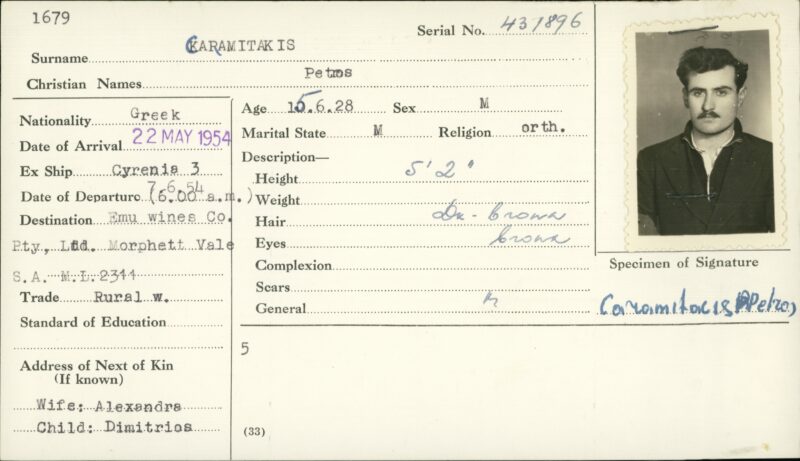 1679
Serial No. 431896
Surname CARAMITAKIS
Christian Names Petros
Nationality Greek
Date of Arrival 22 MAY 1954
Ex Ship Cyrenia 3
Date of Departure 7.6.54 (6.00 a.m.)
Destination Emu wines Co.
Pty, Ltd. Morphett Vale
S.A. M.L.2344
Trade Rural w.
Standard of Education
Address of Next of Kin
(If known)
Wife: Alexandra
Child: Dimitrios
Age 15.6.28 Sex M
Marital State M Religion orth.
Description—
Height 5' 2"
Weight
Hair Dk-brown
Eyes brown
Complexion
Scars
General
5
(33)
Specimen of Signature
Caramitacis Petros